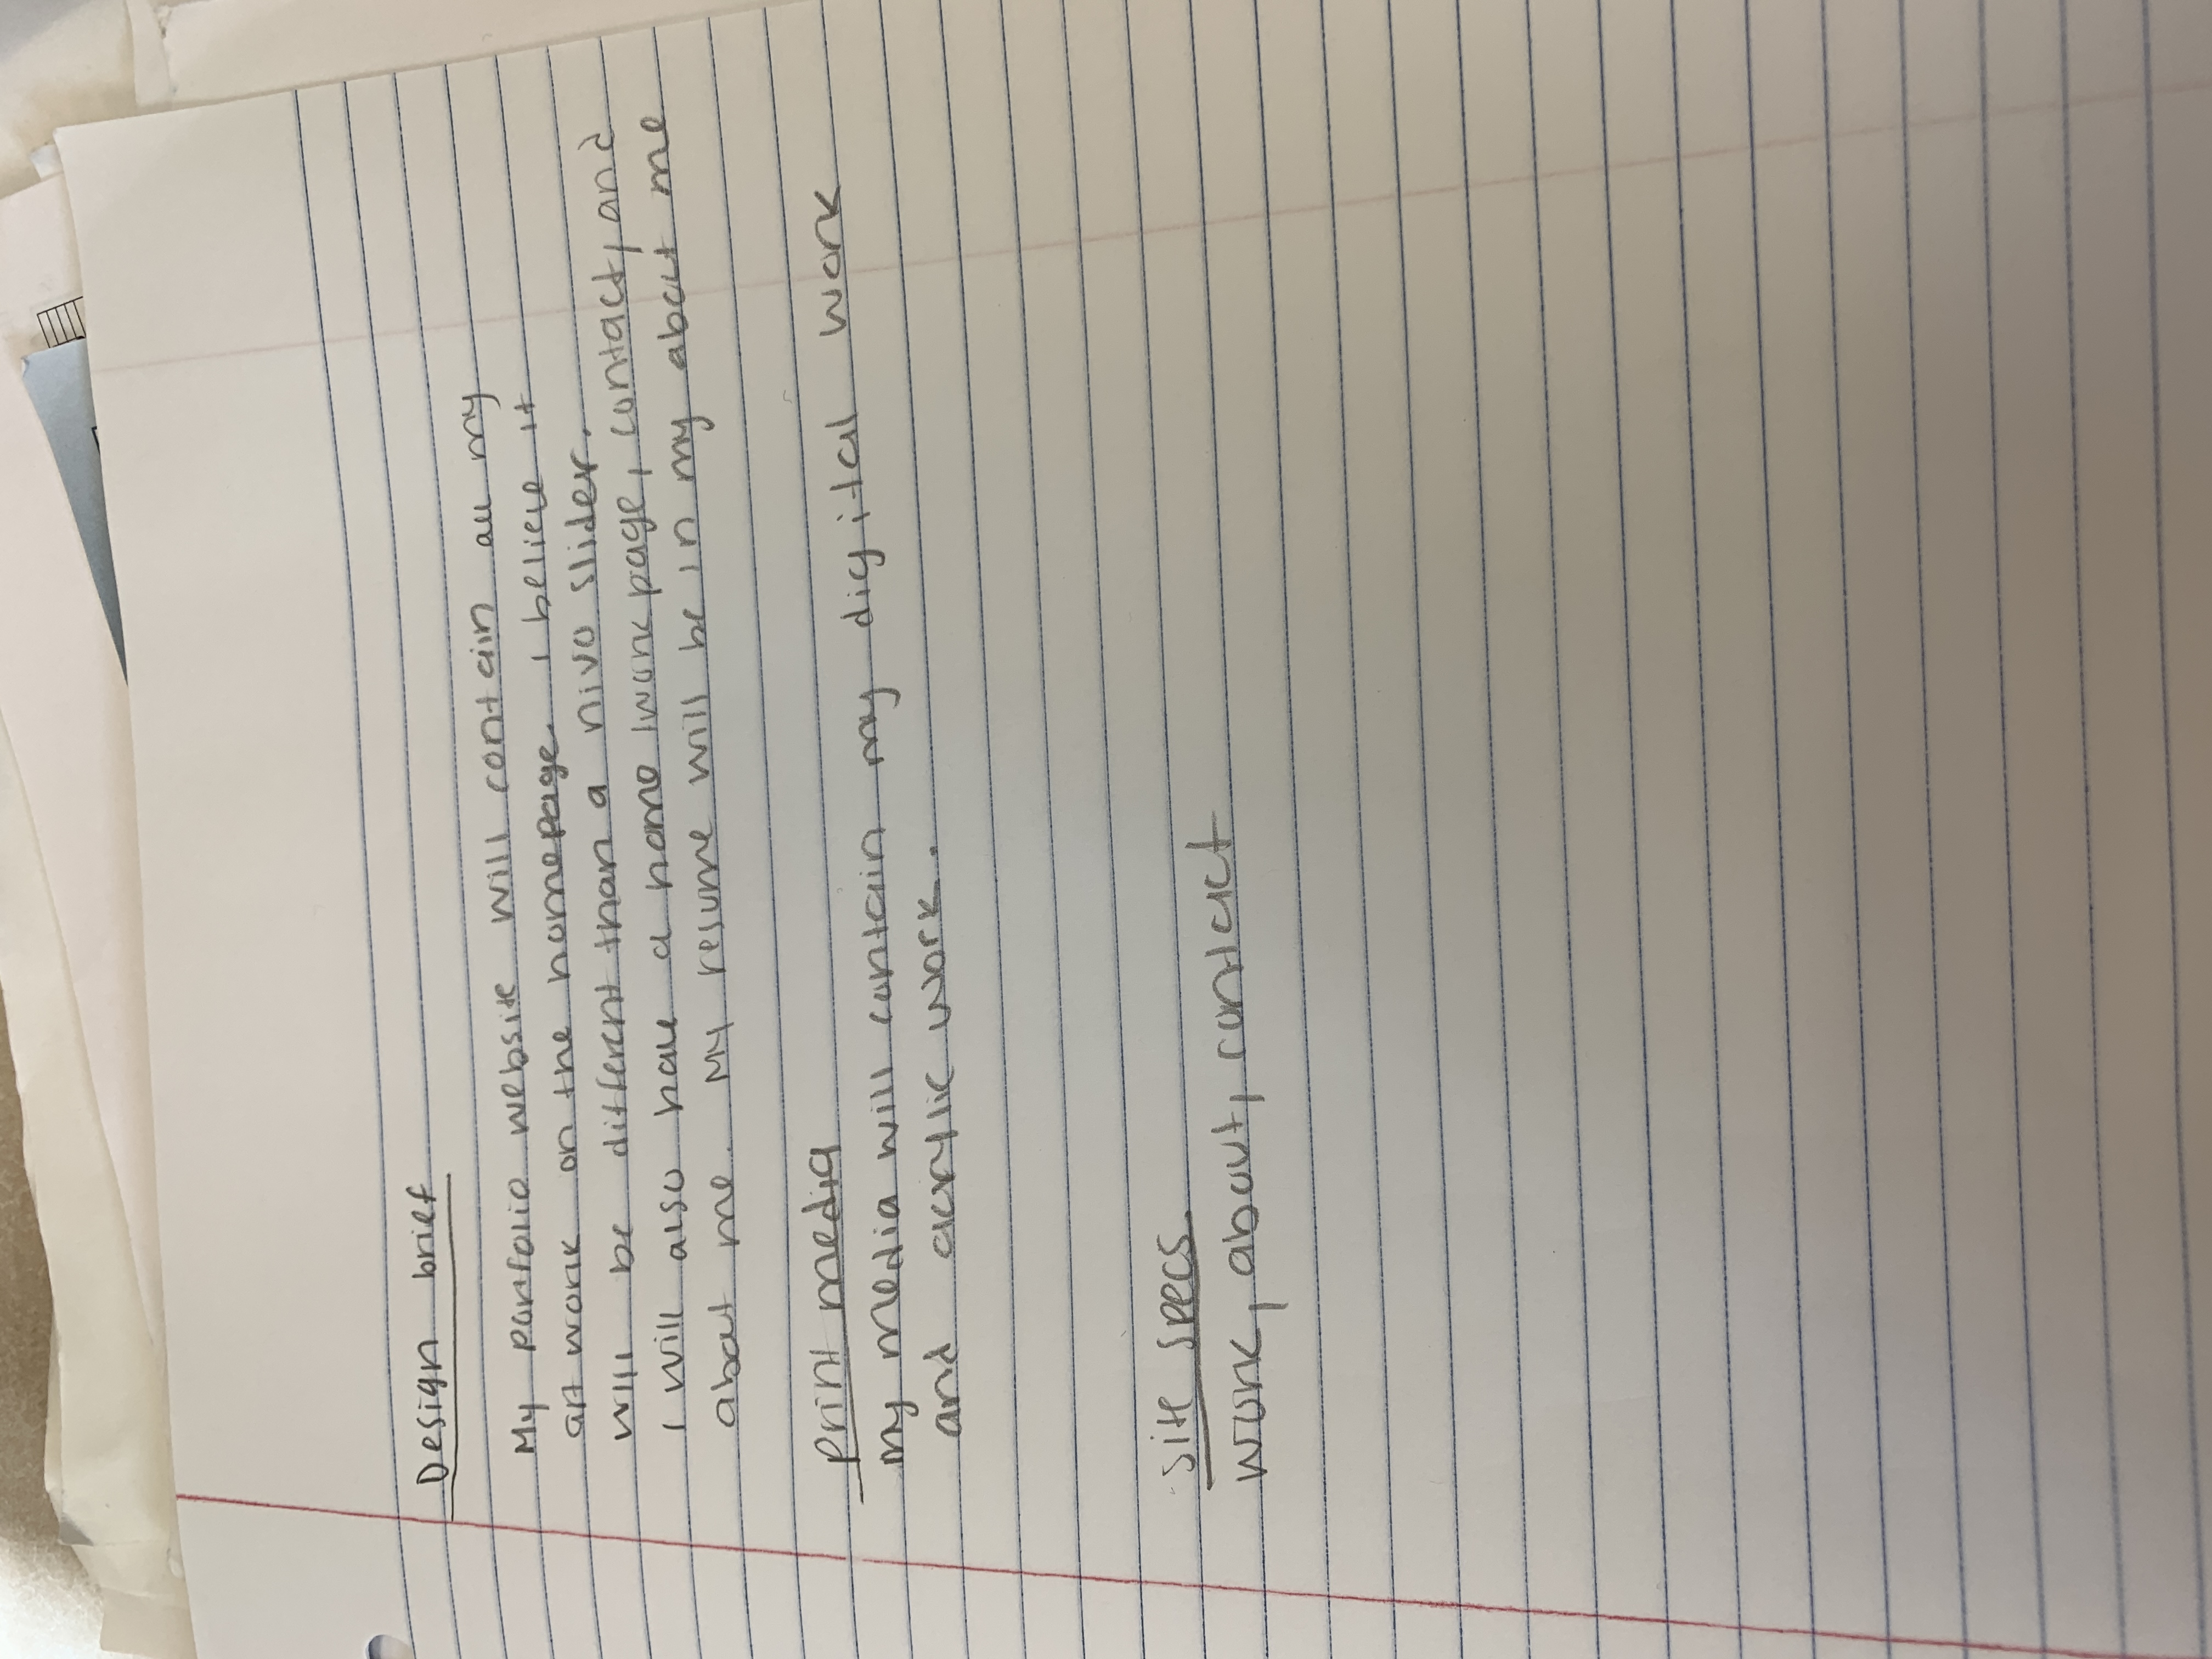 Design brief
My portfolio website will contain all my
art work on the homepage. I believe it
will be different than a nivo slider.
I will also have a home /work page, contact, and
about me. My resume will be in my about me
print media
my media will contain my digital work
and acrylic work.
site specs
work, about, contact